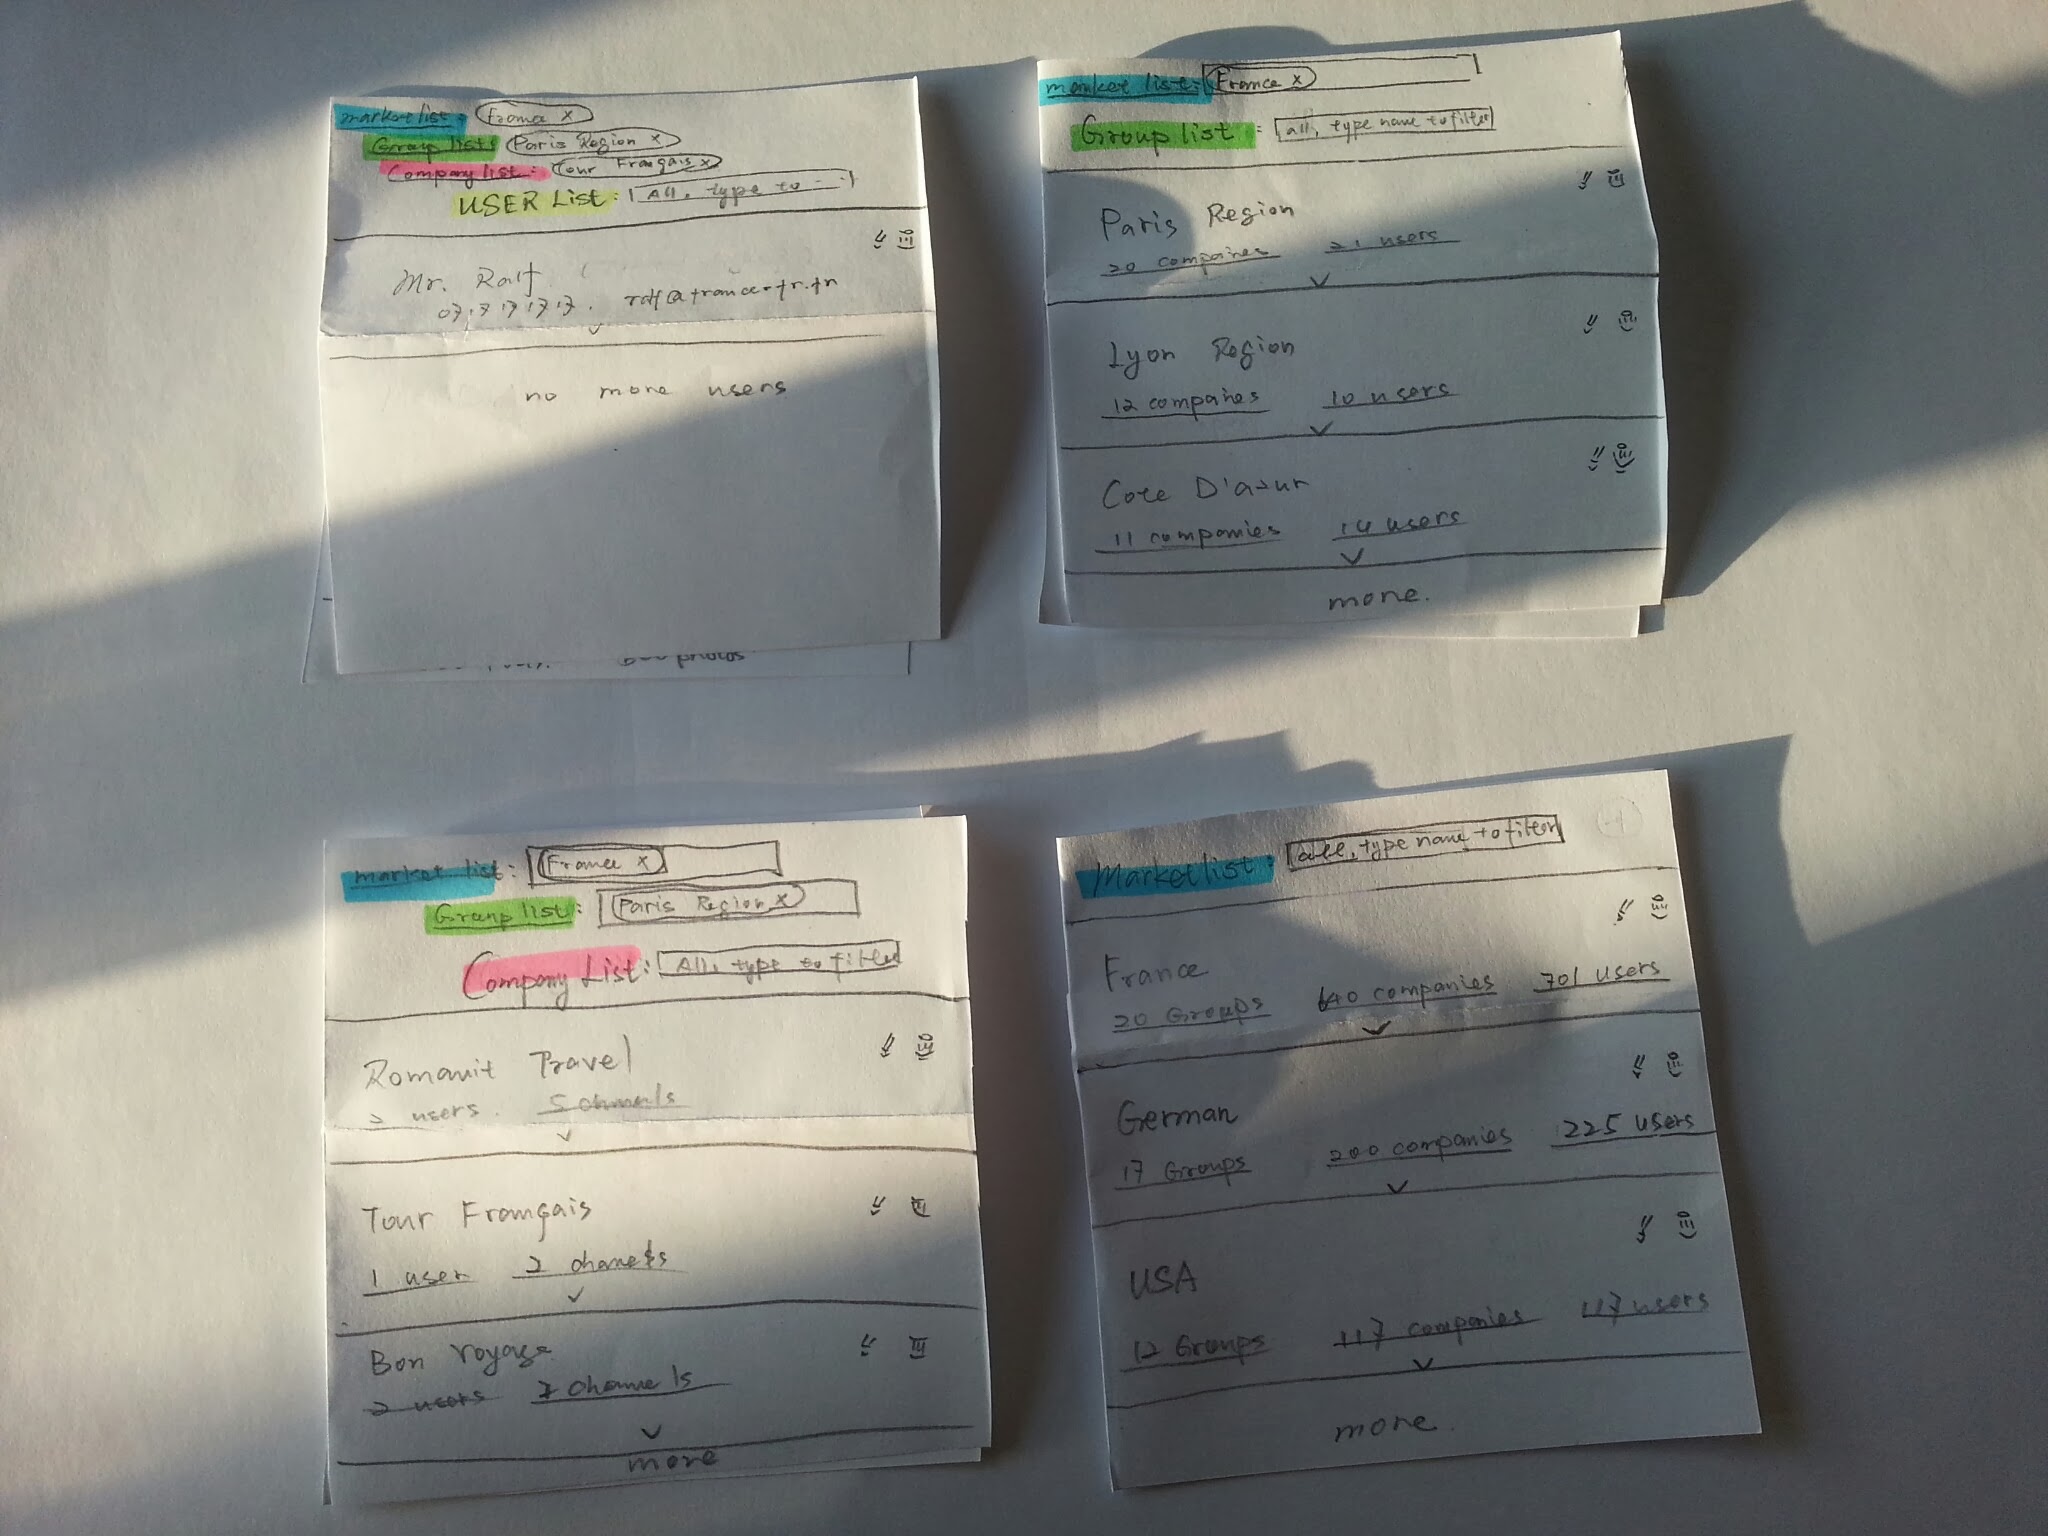 market list: France x
Group list: Paris Region x
Company list: Tour Français x
USER List: All, type to
Mr. Ralf
no more users
photos
market list: France x
Group list: all, type name to filter
Paris Region
20 compaines 21 users
Lyon Region
12 compaines 10 users
Cote D'azur
11 companies 14 users
more.
market list: France x
Group list: Paris Region x
Company List: All, type to filter
Romanit Travel
2 users. 5 channels
Tour Français
1 user 2 channels
Bon Voyage
2 users 7 channels
more
Market list: all, type name to filter
France
20 Groups 640 companies 701 users
German
17 Groups 200 companies 225 users
USA
12 Groups 117 companies 117 users
more.